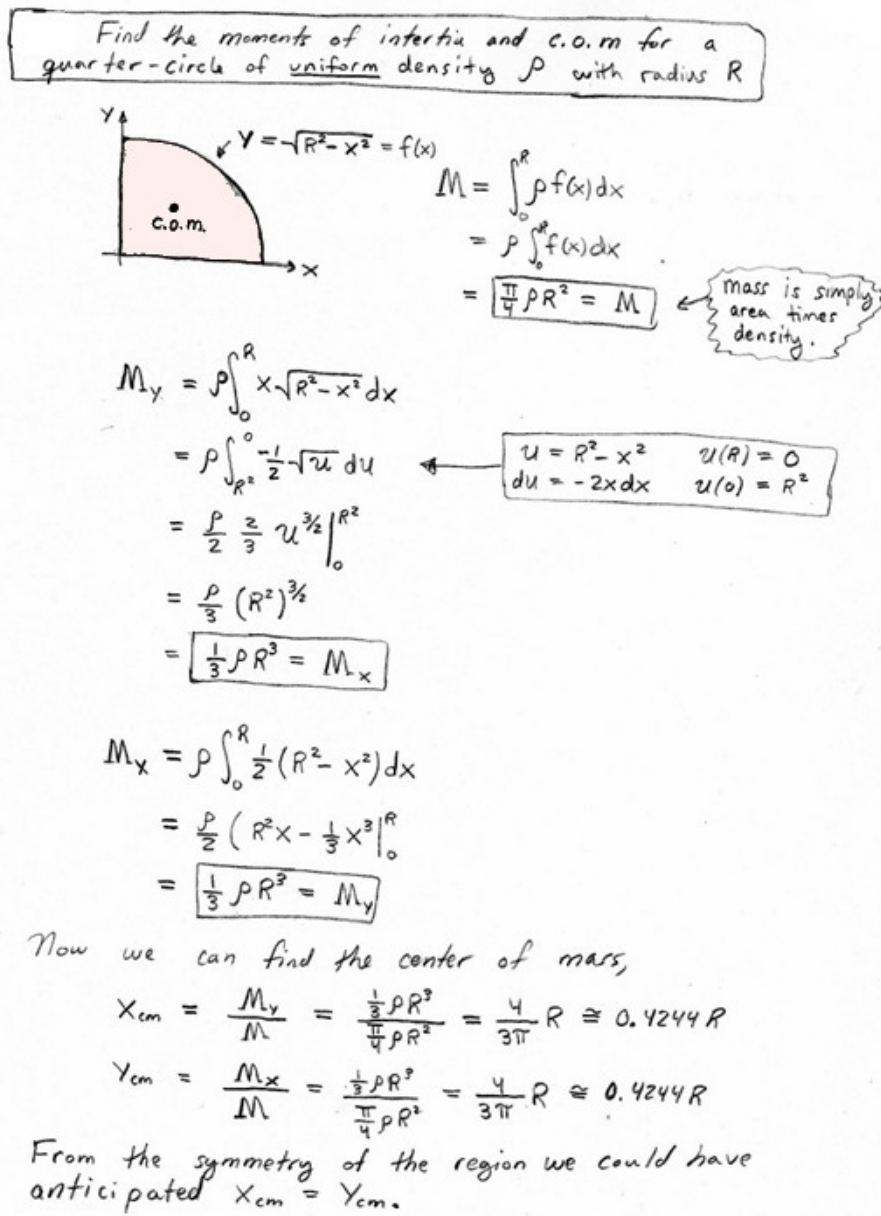 Find the moments of intertia and c.o.m for a
quarter-circle of uniform density ρ with radius R
Y
Y = √(R² - x²) = f(x)
c.o.m.
X
M = ∫₀ᴿ ρ f(x) dx
= ρ ∫₀ᴿ f(x) dx
= π/4 ρR² = M
mass is simply
area times
density.
M_y = ρ ∫₀ᴿ x √(R² - x²) dx
= ρ ∫_{R²}^{0} -1/2 √u du
u = R² - x² u(R) = 0
du = -2x dx u(0) = R²
= ρ/2 2/3 u^{3/2} |₀^{R²}
= ρ/3 (R²)^{3/2}
= 1/3 ρR³ = M_x
M_x = ρ ∫₀ᴿ 1/2 (R² - x²) dx
= ρ/2 ( R²x - 1/3 x³ |₀ᴿ
= 1/3 ρR³ = M_y
Now we can find the center of mass,
X_cm = M_y/M = (1/3 ρR³)/(π/4 ρR²) = 4/(3π) R ≅ 0.4244 R
Y_cm = M_x/M = (1/3 ρR³)/(π/4 ρR²) = 4/(3π) R ≅ 0.4244 R
From the symmetry of the region we could have
anticipated X_cm = Y_cm.